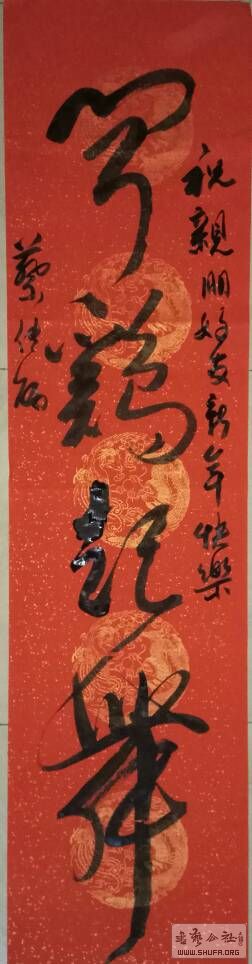 祝親朋好友新年快樂
闻鷄起舞
蔡
書藝公社
WWW.SHUFA.ORG